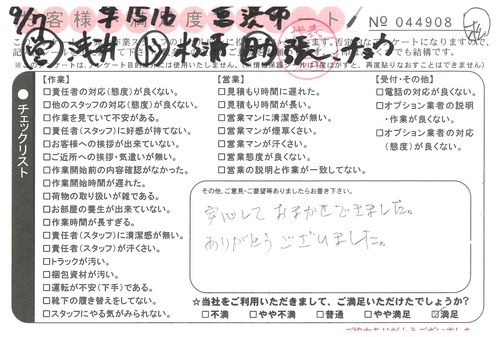 9/7 千1516 三次市
お客様 不満足度 アンケート No 044908
営 浅井 松浦 助
チェックリスト
【作業】
□責任者の対応(態度)が良くない。
□他のスタッフの対応(態度)が良くない。
□作業を見ていて不安がある。
□責任者(スタッフ)に好感が持てない。
□お客様への挨拶が出来ていない。
□ご近所への挨拶・気遣いが無い。
□作業開始前の内容確認がなかった。
□作業開始時間が遅れた。
□荷物の取り扱いが雑である。
□お部屋の養生が出来ていない。
□作業時間が長すぎる。
□責任者(スタッフ)に清潔感が無い。
□責任者(スタッフ)が汗くさい。
□トラックが汚い。
□梱包資材が汚い。
□運転が不安(下手)である。
□靴下の履き替えをしてない。
□スタッフにやる気がみられない。
【営業】
□見積もり時間に遅れた。
□見積もり時間が長い。
□営業マンに清潔感が無い。
□営業マンが煙草くさい。
□営業マンが汗くさい。
□営業態度が良くない。
□営業の説明と作業が一致してない。
【受付・その他】
□電話の対応が良くない。
□オプション業者の説明・作業が良くない。
□オプション業者の対応(態度)が良くない。
その他、ご意見・ご要望等ありましたらお書き下さい。
安心しておまかせできました。
ありがとうございました。
☆当社をご利用いただきまして、ご満足いただけたでしょうか?
□不満 □やや不満 □普通 □やや満足 ☑満足